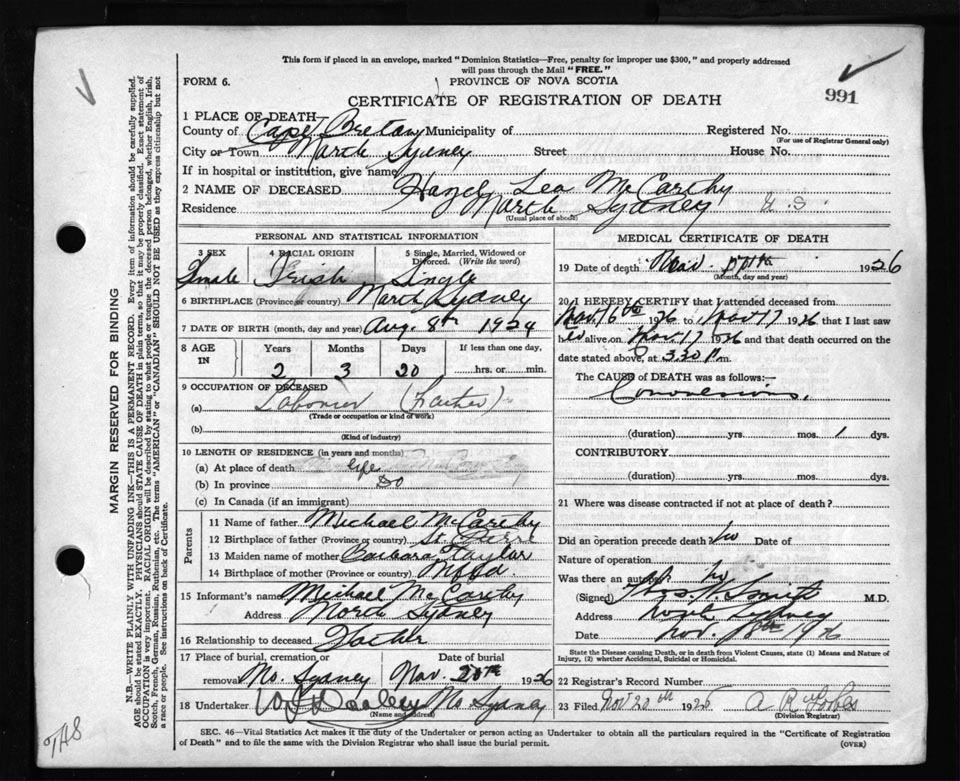 This form if placed in an envelope, marked "Dominion Statistics—Free, penalty for improper use $300," and properly addressed
will pass through the Mail "FREE."
FORM 6.
PROVINCE OF NOVA SCOTIA
CERTIFICATE OF REGISTRATION OF DEATH
991
1 PLACE OF DEATH—
County of Cape Breton Municipality of Registered No.
(For use of Registrar General only)
City or Town North Sydney Street House No.
If in hospital or institution, give name
2 NAME OF DECEASED Hazel Lea McCarthy
Residence North Sydney
(Usual place of abode)
PERSONAL AND STATISTICAL INFORMATION
3 SEX 4 RACIAL ORIGIN 5 Single, Married, Widowed or Divorced. (Write the word)
Female Irish Single
6 BIRTHPLACE (Province or country) North Sydney
7 DATE OF BIRTH (month, day and year) Aug. 8th 1924
8 AGE IN Years Months Days If less than one day,
2 3 20 hrs. or min.
9 OCCUPATION OF DECEASED
(a) Laborer (Father)
(Trade or occupation or kind of work)
(b)
(Kind of industry)
10 LENGTH OF RESIDENCE (in years and months)
(a) At place of death life
(b) In province Do
(c) In Canada (if an immigrant)
Parents
11 Name of father Michael McCarthy
12 Birthplace of father (Province or country) St.
13 Maiden name of mother Barbara Taylor
14 Birthplace of mother (Province or country) Nfld
15 Informant's name Michael McCarthy
Address North Sydney
16 Relationship to deceased Father
17 Place of burial, cremation or removal Date of burial
No. Sydney Nov. 20th 1926
18 Undertaker No Sydney
(Name and address)
MEDICAL CERTIFICATE OF DEATH
19 Date of death Nov 1926
(Month, day and year)
20 I HEREBY CERTIFY that I attended deceased from
Nov 16th 1926 to Nov 17 1926 that I last saw
h alive on Nov 17 1926 and that death occurred on the
date stated above, at 3.30 P.m.
The CAUSE of DEATH was as follows:—
Convulsions.
(duration) yrs. mos. 1 dys.
CONTRIBUTORY
(duration) yrs. mos. dys.
21 Where was disease contracted if not at place of death?
Did an operation precede death? No Date of
Nature of operation
Was there an autopsy No
(Signed) M.D.
Address North Sydney
Date Nov. 18th 1926
State the Disease causing Death, or in death from Violent Causes, state (1) Means and Nature of
Injury, (2) whether Accidental, Suicidal or Homicidal.
22 Registrar's Record Number
23 Filed Nov 20th 1926 A R Forbes
(Division Registrar)
SEC. 46—Vital Statistics Act makes it the duty of the Undertaker or person acting as Undertaker to obtain all the particulars required in the "Certificate of Registration
of Death" and to file the same with the Division Registrar who shall issue the burial permit.
(OVER)
MARGIN RESERVED FOR BINDING
N.B.—WRITE PLAINLY WITH UNFADING INK—THIS IS A PERMANENT RECORD. Every item of information should be carefully supplied.
AGE should be stated EXACTLY. PHYSICIANS should STATE CAUSE OF DEATH in plain terms, so that it may be properly classified. Exact statement of
OCCUPATION is very important. RACIAL ORIGIN will be described by stating to what people or tongue the deceased person belonged, whether English, Irish,
Scotch, French, German, Russian, Ruthenian, etc. The terms "AMERICAN" or "CANADIAN" SHOULD NOT BE USED as they express citizenship but not
a race or people. See instructions on back of Certificate.